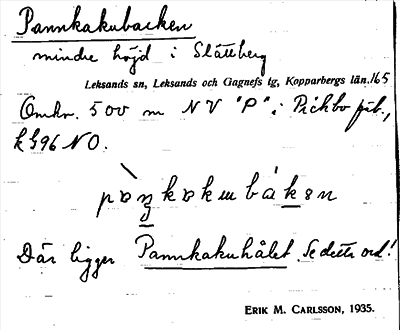 Pannkakubacken
mindre höjd i Slättberg
Leksands sn, Leksands och Gagnefs tg, Kopparbergs län. 165
Omkr. 500 m NV "P" i Pickbo fäb.,
k 596 NO.
Där ligger Pannkakuhålet. Se detta ord!
ERIK M. CARLSSON, 1935.